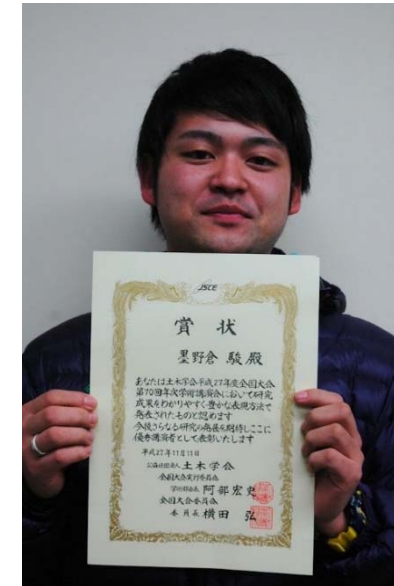 JSCE
賞状
墨野倉 駿 殿
あなたは土木学会平成27年度全国大会
第70回年次学術講演会において研究
成果をわかりやすく豊かな表現方法で
発表されたものと認めます
今後さらなる研究の発展を期待しここに
優秀講演者として表彰いたします
平成27年11月11日
公益社団法人 土木学会
全国大会実行委員会
学術部会長 阿部宏史
全国大会委員会
委員長 横田 弘